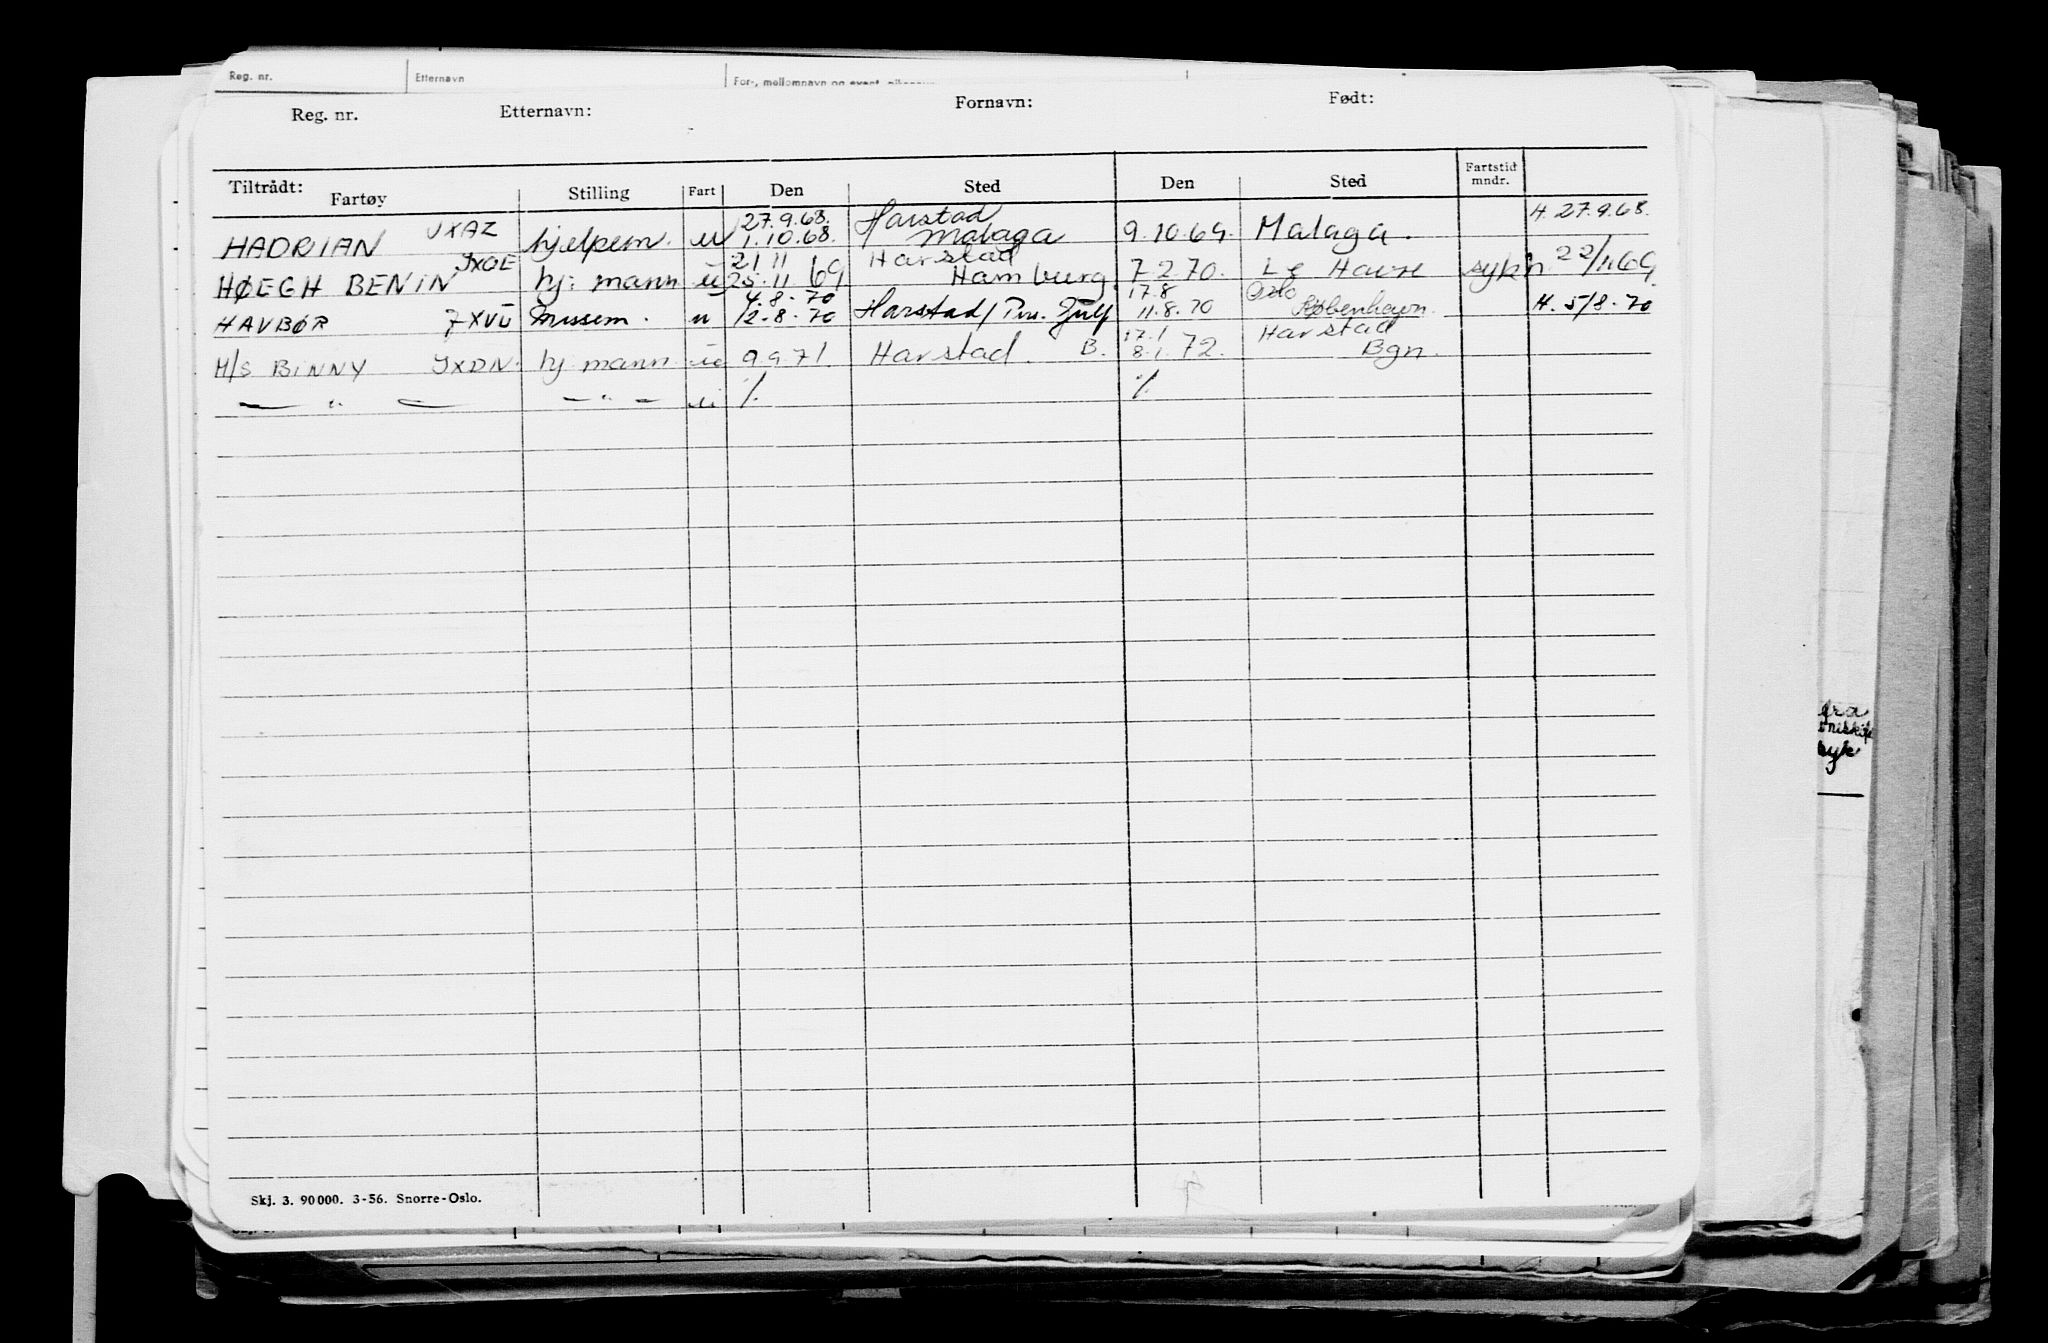 Reg. nr. Etternavn For-, mellomnavn og
Reg. nr. Etternavn: Fornavn: Født:
Tiltrådt: Fartøy Stilling Fart Den Sted Den Sted Fartstid mndr.
27.9.68. Harstad H. 27.9.68.
HADRIAN JXAZ hjelpem. u 1.10.68. Malaga 9.10.69. Malaga.
21 11 Harstad
HØEGH BENIN JXOE hj: mann u 25.11 69 Hamburg. 7.2.70. Le Havre sykn 22/11 69
4.8.70 17.8 Oslo
HAVBØR JXVU Messem. u 12.8.70 Harstad/ Gulf 11.8.70 København. H. 5/8-70
17.1 Harstad
M/S BINNY JXDN. hj. mann u 9.9.71. Harstad. B. 8.1.72. Bgn.
— " — — " — u ./. ./.
fra
syk
Skj. 3. 90000. 3-56. Snorre-Oslo.